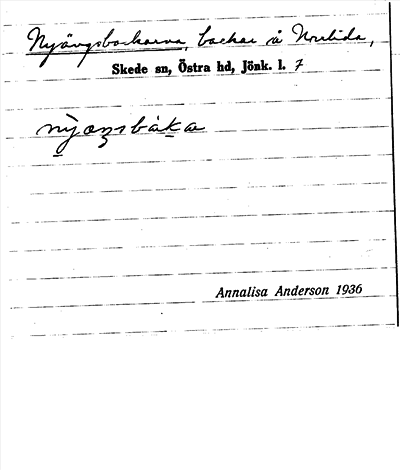 Nyängsbackarna, backar å Norrlida,
Skede sn, Östra hd, Jönk. l. 7
Annalisa Anderson 1936